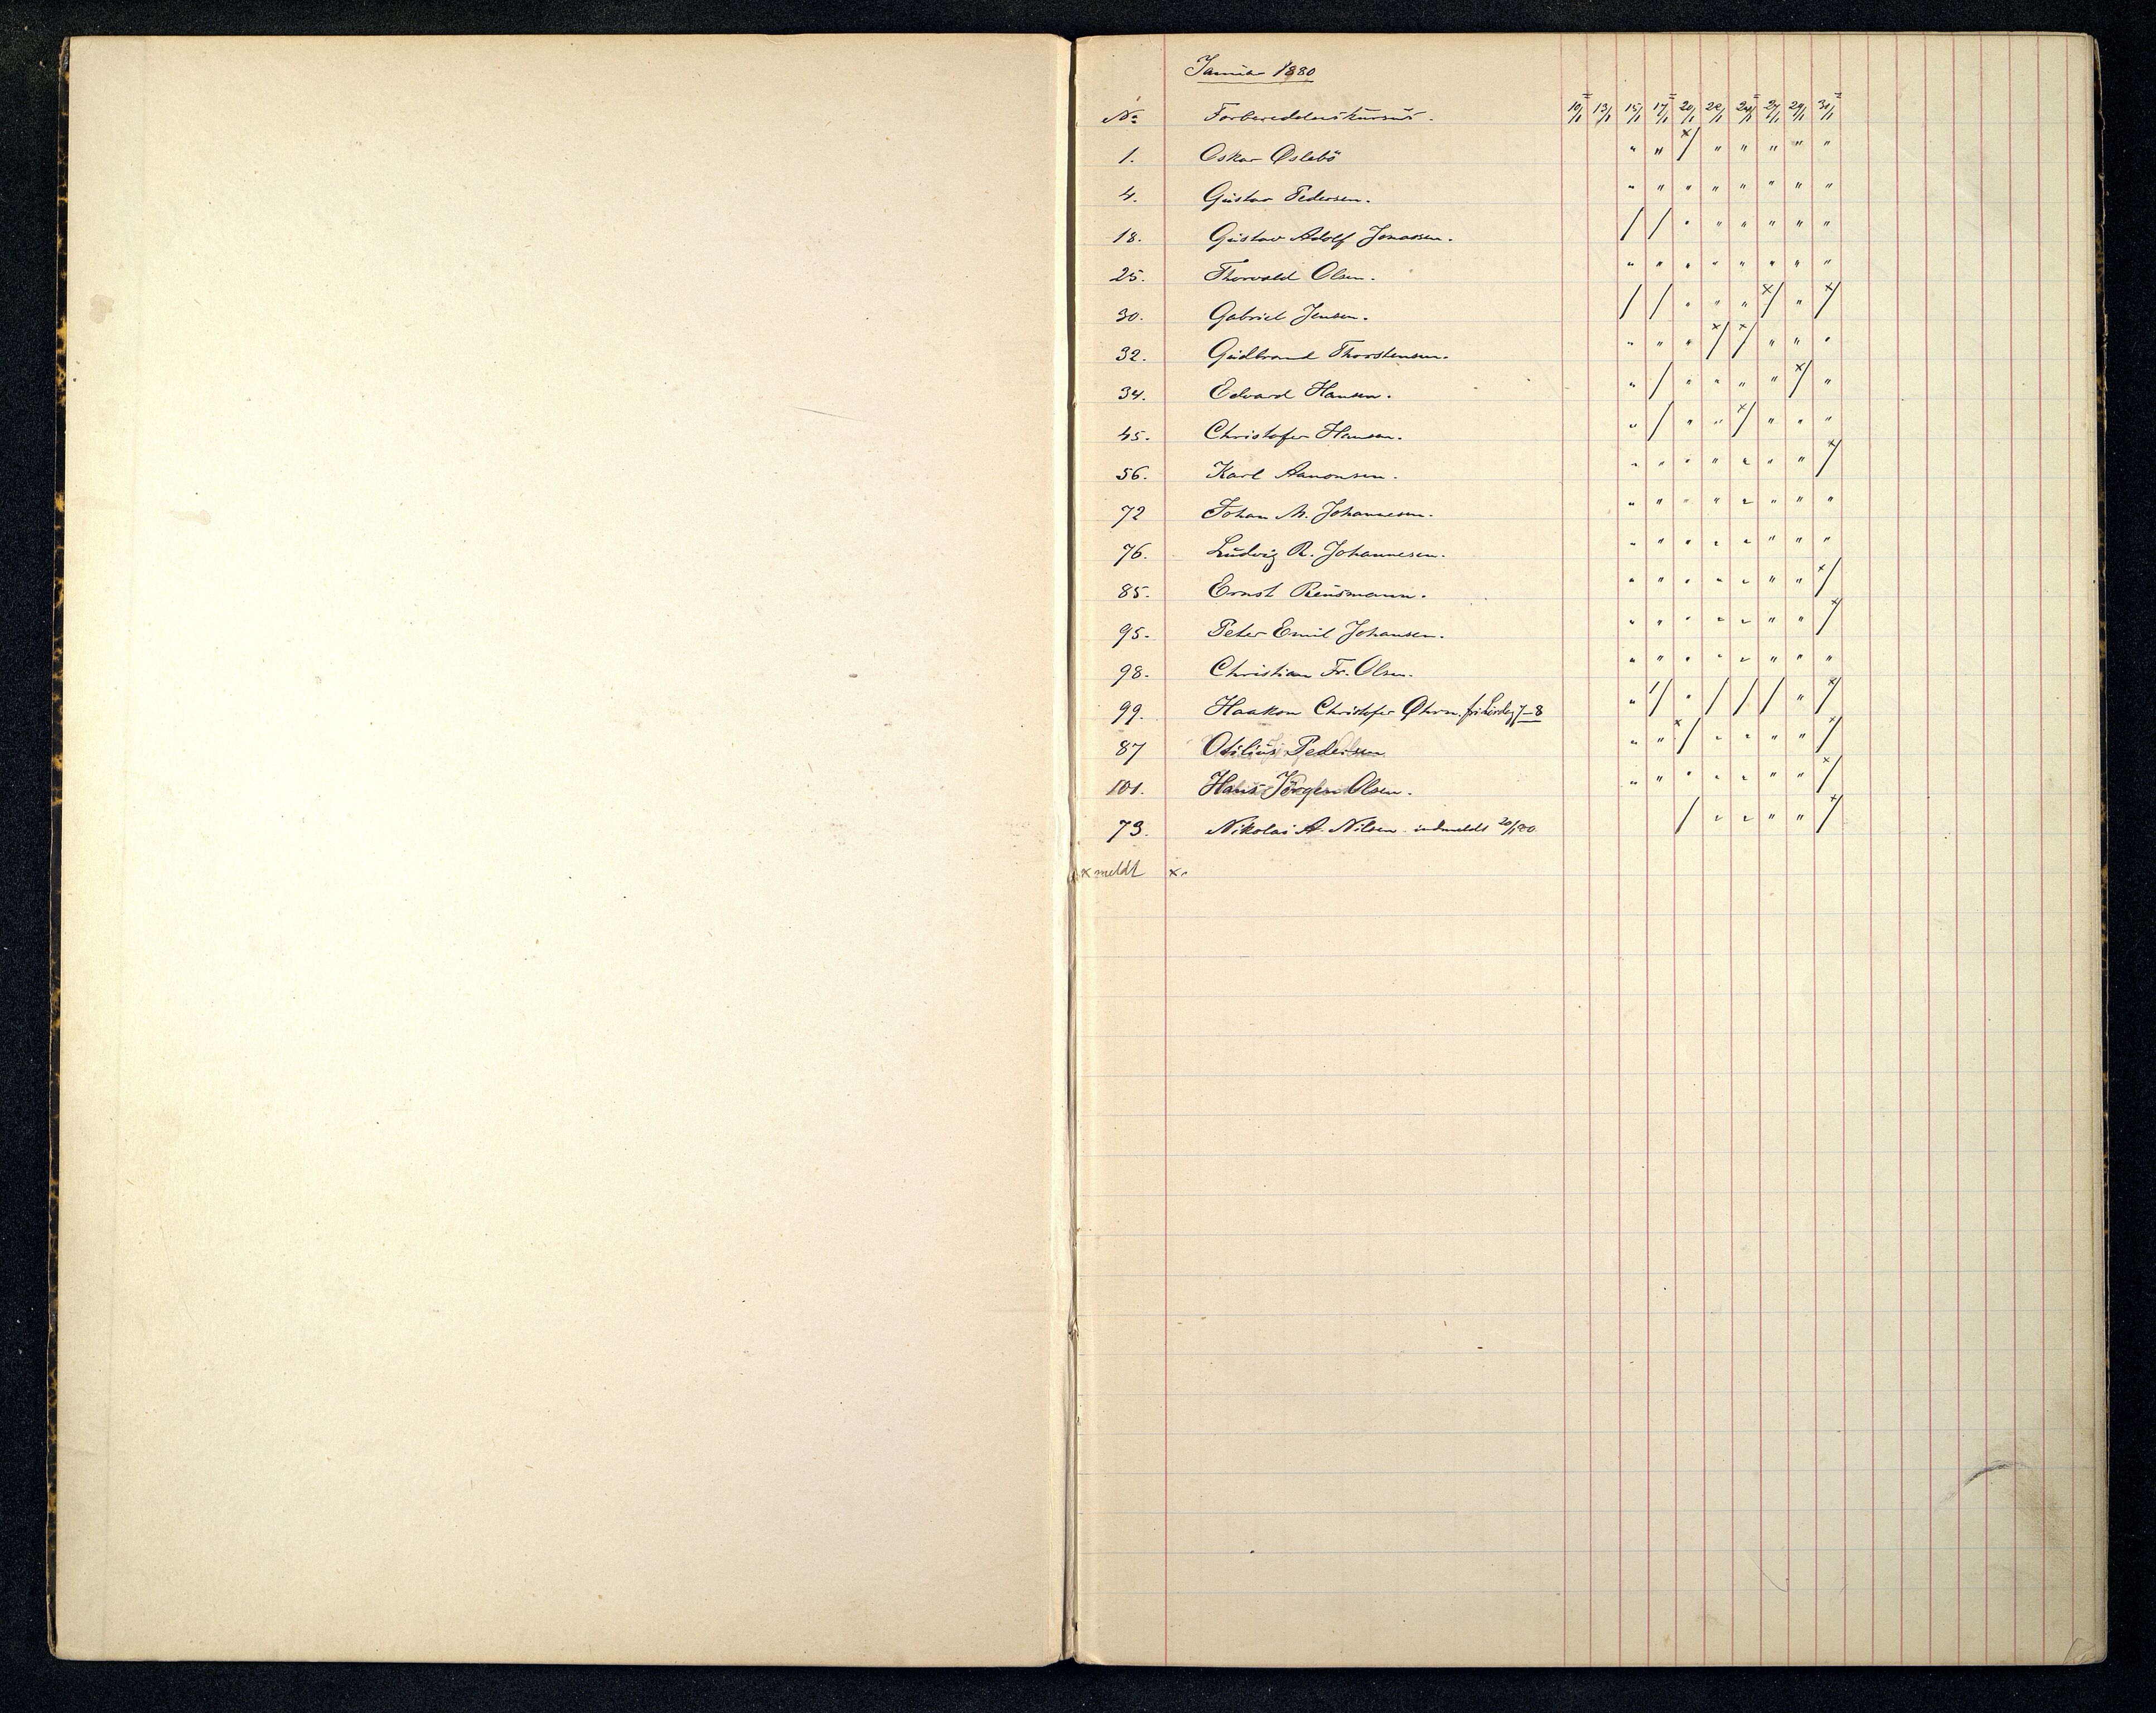 Januar 1880
No Forberedelseskursus. 10/1 13/1 15/1 17/1 20/1 22/1 24/1 27/1 29/1 31/1
1. Oskar Øslebö " " x/ " " " " "
4. Gustav Pedersen. " " " " " " " "
18. Gustav Adolf Jonassen. / / " " " " " "
25. Thorvald Olsen. " " " " " " " "
30. Gabriel Jensen. / / " " " x/ " x/
32. Gudbrand Thorstensen. " " " x/ x/ " " "
34. Edvard Hansen. " / " " " " x/ "
45. Christofer Hansen. " / " " x/ " " "
56. Karl Aanonsen. " " " " " " " x/
72 Johan M. Johannesen. " " " " " " " "
76. Ludvig R. Johannesen. " " " " " " " "
85. Ernst Reusmann. " " " " " " " x/
95. Peter Emil Johansen. " " " " " " " x/
98. Christian Fr. Olsen. " " " " " " " "
99. Haakon Christofer Øhrn. fri Lördag 7-8 " / " / / / " x/
87 Otilius Pedersen " " x/ " " " " x/
101. Hans Jörgen Olsen. " " " " " " " x/
73. Nikolai A. Nilsen. indmeldt 20/1 80. / " " " " x/
x meldt x.